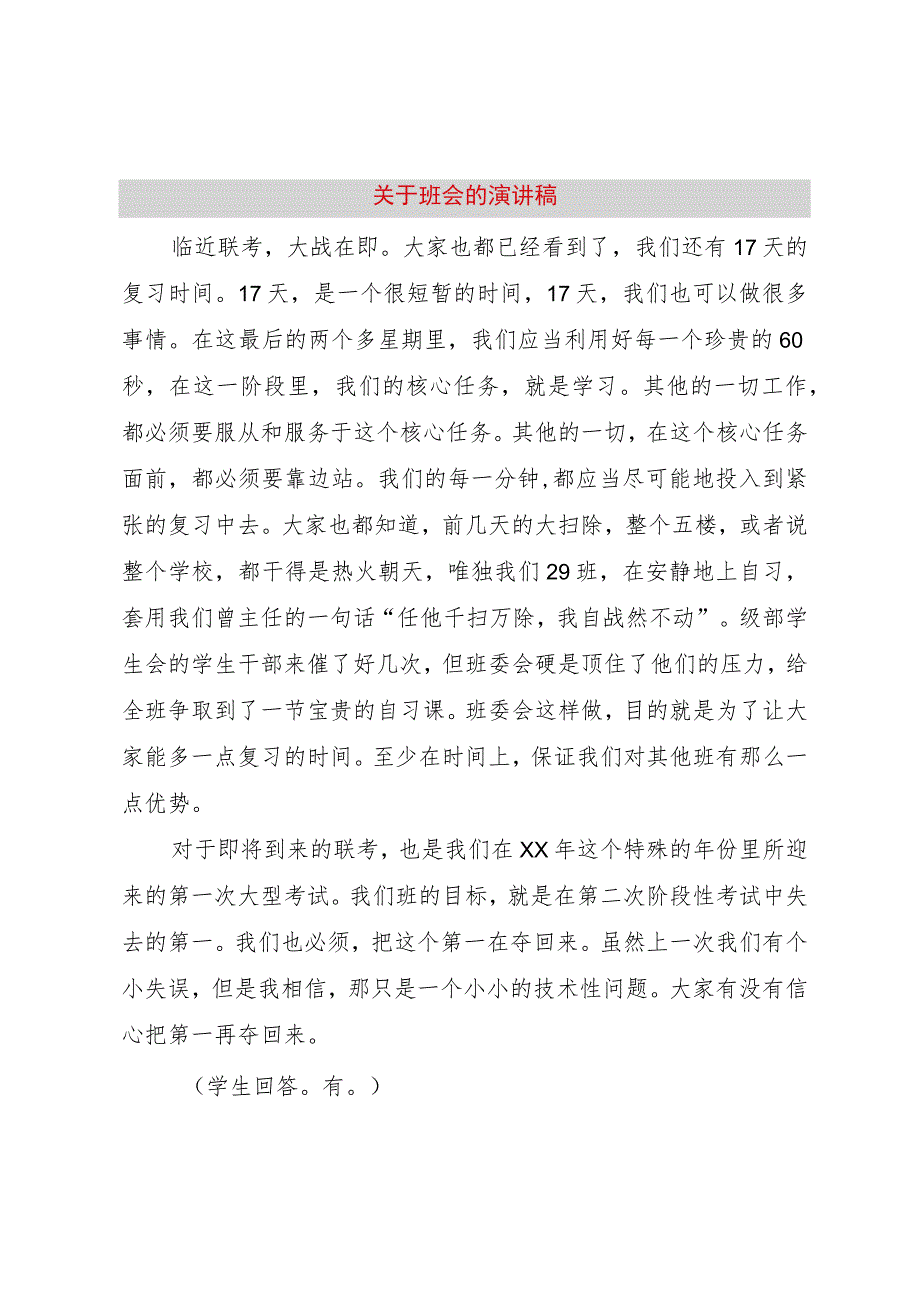 关于班会的演讲稿
临近联考，大战在即。大家也都已经看到了，我们还有17天的
复习时间。17天，是一个很短暂的时间，17天，我们也可以做很多
事情。在这最后的两个多星期里，我们应当利用好每一个珍贵的60
秒，在这一阶段里，我们的核心任务，就是学习。其他的一切工作，
都必须要服从和服务于这个核心任务。其他的一切，在这个核心任务
面前，都必须要靠边站。我们的每一分钟,都应当尽可能地投入到紧
张的复习中去。大家也都知道，前几天的大扫除，整个五楼，或者说
整个学校，都干得是热火朝天，唯独我们29班，在安静地上自习，
套用我们曾主任的一句话“任他千扫万除，我自战然不动”。级部学
生会的学生干部来催了好几次，但班委会硬是顶住了他们的压力，给
全班争取到了一节宝贵的自习课。班委会这样做，目的就是为了让大
家能多一点复习的时间。至少在时间上，保证我们对其他班有那么一
点优势。
对于即将到来的联考，也是我们在XX年这个特殊的年份里所迎
来的第一次大型考试。我们班的目标，就是在第二次阶段性考试中失
去的第一。我们也必须，把这个第一在夺回来。虽然上一次我们有个
小失误，但是我相信，那只是一个小小的技术性问题。大家有没有信
心把第一再夺回来。
（学生回答。有。）